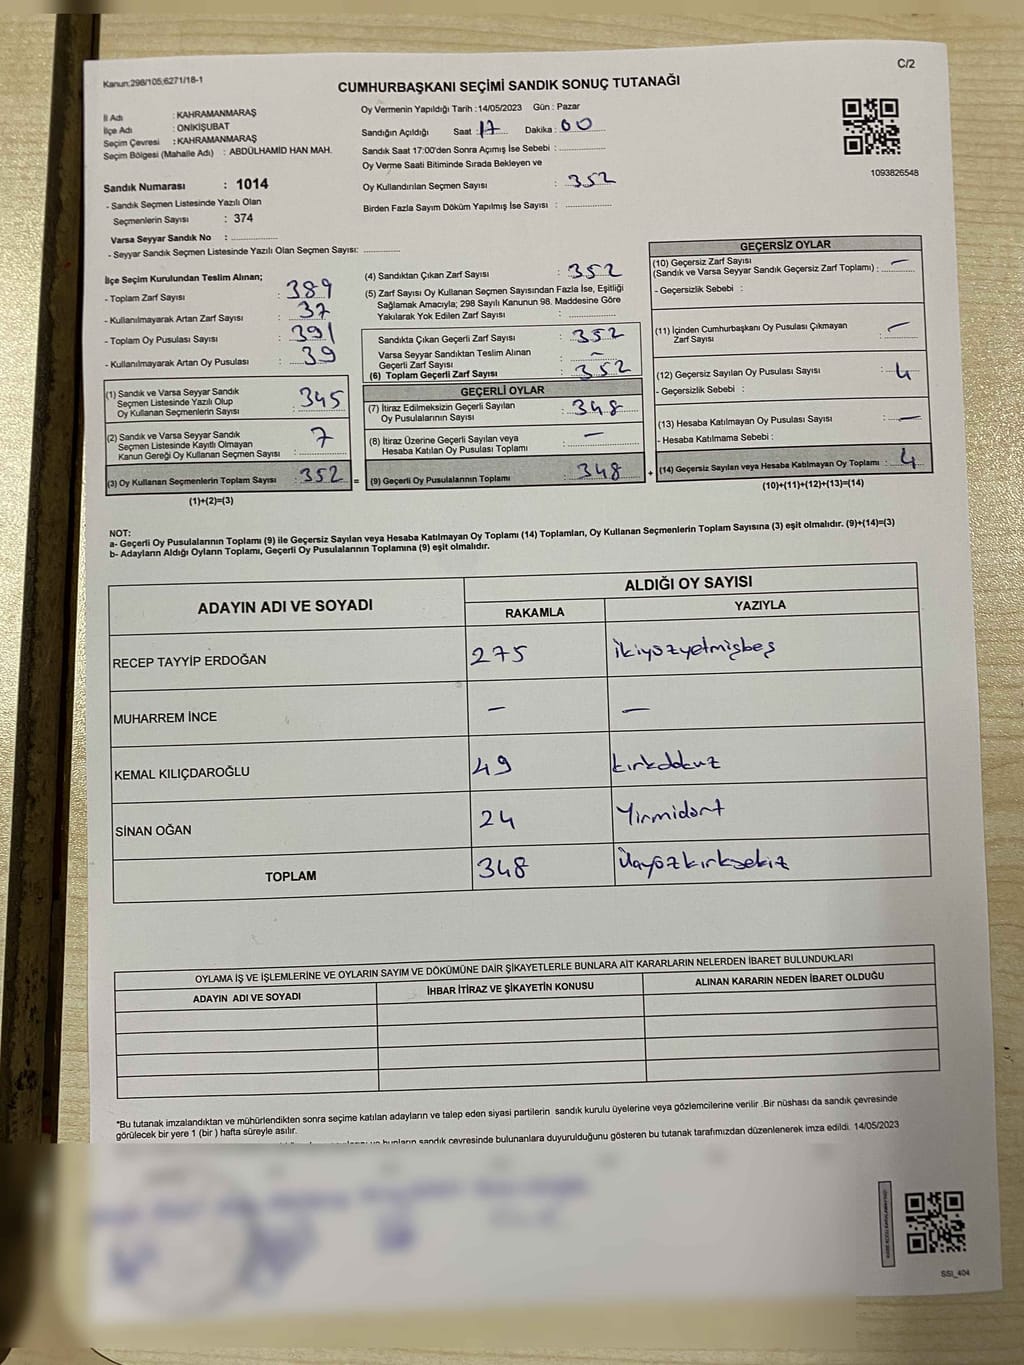 Kanun:298/105;6271/18-1
C/2
CUMHURBAŞKANI SEÇİMİ SANDIK SONUÇ TUTANAĞI
İl Adı : KAHRAMANMARAŞ
İlçe Adı : ONİKİŞUBAT
Seçim Çevresi : KAHRAMANMARAŞ
Seçim Bölgesi (Mahalle Adı) : ABDÜLHAMİD HAN MAH.
Sandık Numarası : 1014
- Sandık Seçmen Listesinde Yazılı Olan
Seçmenlerin Sayısı : 374
Varsa Seyyar Sandık No :
- Seyyar Sandık Seçmen Listesinde Yazılı Olan Seçmen Sayısı:
Oy Vermenin Yapıldığı Tarih :14/05/2023 Gün : Pazar
Sandığın Açıldığı Saat : 17 Dakika : 00
Sandık Saat 17:00'den Sonra Açımış İse Sebebi :
Oy Verme Saati Bitiminde Sırada Bekleyen ve
Oy Kullandırılan Seçmen Sayısı : 352
Birden Fazla Sayım Döküm Yapılmış İse Sayısı :
1093826548
İlçe Seçim Kurulundan Teslim Alınan;
- Toplam Zarf Sayısı : 389
- Kullanılmayarak Artan Zarf Sayısı : 37
- Toplam Oy Pusulası Sayısı : 391
- Kullanılmayarak Artan Oy Pusulası : 39
(1) Sandık ve Varsa Seyyar Sandık
Seçmen Listesinde Yazılı Olup
Oy Kullanan Seçmenlerin Sayısı : 345
(2) Sandık ve Varsa Seyyar Sandık
Seçmen Listesinde Kayıtlı Olmayan
Kanun Gereği Oy Kullanan Seçmen Sayısı : 7
(3) Oy Kullanan Seçmenlerin Toplam Sayısı : 352
(1)+(2)=(3)
(4) Sandıktan Çıkan Zarf Sayısı : 352
(5) Zarf Sayısı Oy Kullanan Seçmen Sayısından Fazla İse, Eşitliği
Sağlamak Amacıyla; 298 Sayılı Kanunun 98. Maddesine Göre
Yakılarak Yok Edilen Zarf Sayısı :
Sandıkta Çıkan Geçerli Zarf Sayısı : 352
Varsa Seyyar Sandıktan Teslim Alınan
Geçerli Zarf Sayısı : –
(6) Toplam Geçerli Zarf Sayısı : 352
GEÇERLİ OYLAR
(7) İtiraz Edilmeksizin Geçerli Sayılan
Oy Pusulalarının Sayısı : 348
(8) İtiraz Üzerine Geçerli Sayılan veya
Hesaba Katılan Oy Pusulası Toplamı : –
= (9) Geçerli Oy Pusulalarının Toplamı : 348
GEÇERSİZ OYLAR
(10) Geçersiz Zarf Sayısı
(Sandık ve Varsa Seyyar Sandık Geçersiz Zarf Toplamı) : –
- Geçersizlik Sebebi :
(11) İçinden Cumhurbaşkanı Oy Pusulası Çıkmayan
Zarf Sayısı : –
(12) Geçersiz Sayılan Oy Pusulası Sayısı : 4
- Geçersizlik Sebebi :
(13) Hesaba Katılmayan Oy Pusulası Sayısı : –
- Hesaba Katılmama Sebebi :
+ (14) Geçersiz Sayılan veya Hesaba Katılmayan Oy Toplamı : 4
(10)+(11)+(12)+(13)=(14)
NOT:
a- Geçerli Oy Pusulalarının Toplamı (9) ile Geçersiz Sayılan veya Hesaba Katılmayan Oy Toplamı (14) Toplamları, Oy Kullanan Seçmenlerin Toplam Sayısına (3) eşit olmalıdır. (9)+(14)=(3)
b- Adayların Aldığı Oyların Toplamı, Geçerli Oy Pusulalarının Toplamına (9) eşit olmalıdır.
ADAYIN ADI VE SOYADI
ALDIĞI OY SAYISI
RAKAMLA YAZIYLA
RECEP TAYYİP ERDOĞAN 275 ikiyüzyetmişbeş
MUHARREM İNCE – –
KEMAL KILIÇDAROĞLU 49 kırkdokuz
SİNAN OĞAN 24 Yirmidört
TOPLAM 348 Üçyüzkırksekiz
OYLAMA İŞ VE İŞLEMLERİNE VE OYLARIN SAYIM VE DÖKÜMÜNE DAİR ŞİKAYETLERLE BUNLARA AİT KARARLARIN NELERDEN İBARET BULUNDUKLARI
ADAYIN ADI VE SOYADI İHBAR İTİRAZ VE ŞİKAYETİN KONUSU ALINAN KARARIN NEDEN İBARET OLDUĞU
*Bu tutanak imzalandıktan ve mühürlendikten sonra seçime katılan adayların ve talep eden siyasi partilerin sandık kurulu üyelerine veya gözlemcilerine verilir .Bir nüshası da sandık çevresinde
görülecek bir yere 1 (bir ) hafta süreyle asılır.
bunların sandık çevresinde bulunanlara duyurulduğunu gösteren bu tutanak tarafımızdan düzenlenerek imza edildi. 14/05/2023
SSI_404